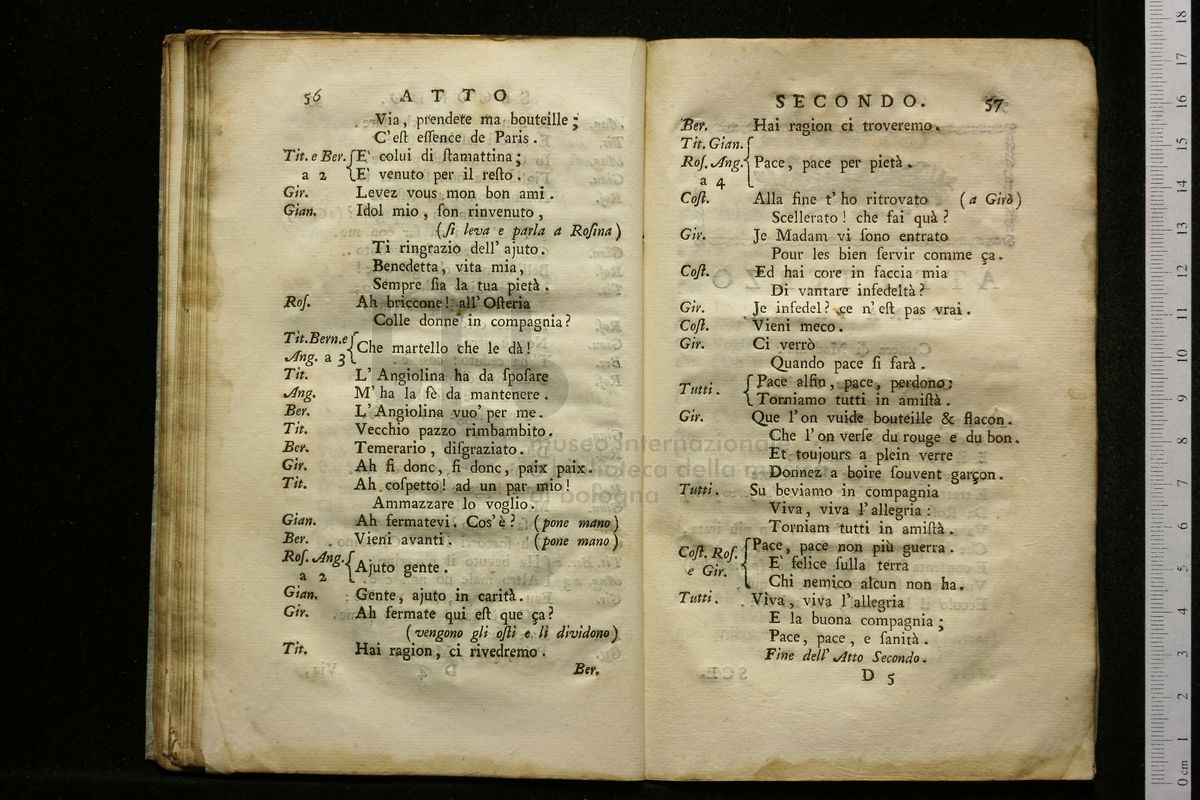 56 ATTO
Via, prendete ma bouteille;
C'eſt eſſence de Paris.
Tit. e Ber. { E' colui di ſtamattina;
a 2 { E' venuto per il reſto.
Gir. Levez vous mon bon ami.
Gian. Idol mio, ſon rinvenuto,
(ſi leva e parla a Roſina)
Ti ringrazio dell' ajuto.
Benedetta, vita mia,
Sempre ſia la tua pietà.
Roſ. Ah briccone! all' Oſteria
Colle donne in compagnia?
Tit. Bern. e
Ang. a 3 { Che martello che le dà!
Tit. L' Angiolina ha da ſpoſare
Ang. M' ha la fè da mantenere.
Ber. L' Angiolina vuo' per me.
Tit. Vecchio pazzo rimbambito.
Ber. Temerario, diſgraziato.
Gir. Ah fi donc, fi donc, paix paix.
Tit. Ah coſpetto! ad un par mio!
Ammazzare lo voglio.
Gian. Ah fermatevi. Cos' è? (pone mano)
Ber. Vieni avanti. (pone mano)
Roſ. Ang. { Ajuto gente.
a 2
Gian. Gente, ajuto in carità.
Gir. Ah fermate qui eſt que ça?
(vengono gli oſti e li dividono)
Tit. Hai ragion, ci rivedremo.
Ber.
D 4
SECONDO. 57
Ber. Hai ragion ci troveremo.
Tit. Gian.
Roſ. Ang. { Pace, pace per pietà.
a 4
Coſt. Alla fine t' ho ritrovato (a Girò)
Scellerato! che fai quà?
Gir. Je Madam vi ſono entrato
Pour les bien ſervir comme ça.
Coſt. Ed hai core in faccia mia
Di vantare infedeltà?
Gir. Je infedel? ce n' eſt pas vrai.
Coſt. Vieni meco.
Gir. Ci verrò
Quando pace ſi farà.
Tutti. { Pace alfin, pace, perdono;
{ Torniamo tutti in amiſtà.
Gir. Que l' on vuide bouteille & flacon.
Che l' on verſe du rouge e du bon.
Et toujours a plein verre
Donnez a boire ſouvent garçon.
Tutti. Su beviamo in compagnia
Viva, viva l' allegria:
Torniam tutti in amiſtà.
Coſt. Roſ. { Pace, pace non più guerra.
e Gir. { E' felice ſulla terra
Chi nemico alcun non ha.
Tutti. Viva, viva l' allegria
E la buona compagnia;
Pace, pace, e ſanità.
Fine dell' Atto Secondo.
D 5
museo internazionale
biblioteca della musica
di bologna
0 cm 1 2 3 4 5 6 7 8 9 10 11 12 13 14 15 16 17 18